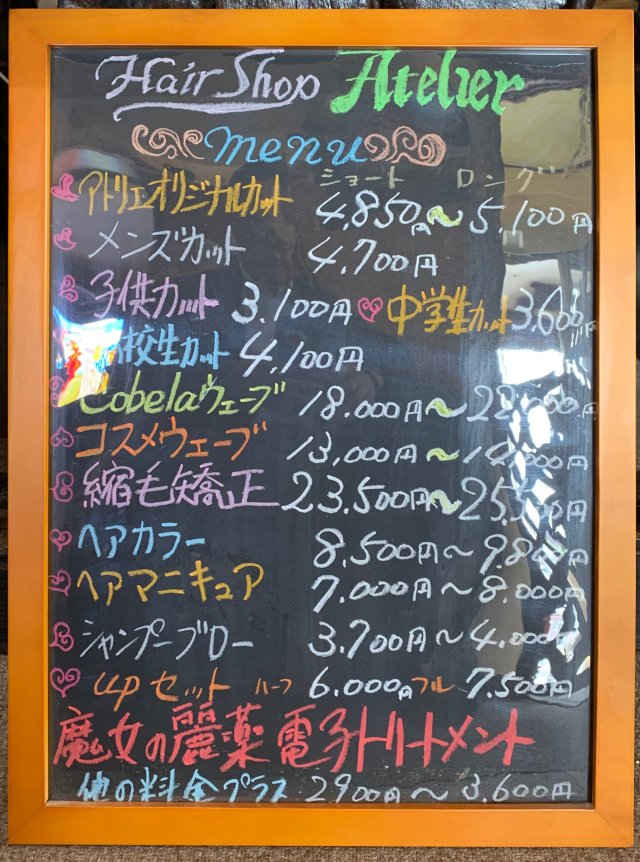 Hair Shop Atelier
menu
ショート ロング
アトリエオリジナルカット 4,850円〜5,100円
メンズカット 4,700円
子供カット 3.100円 中学生カット 3,600円
校生カット 4,100円
Cobelaウェーブ 18.000円〜
コスメウェーブ 13,000円〜
縮毛矯正 23.500円〜
ヘアカラー 8,500円〜
ヘアマニキュア 7.000円〜8.000円
シャンプーブロー 3.700円〜4.000円
upセット ハーフ 6.000円 フル 7.500円
魔女の麗薬 電子トリートメント
他の料金プラス 2900円〜3.600円